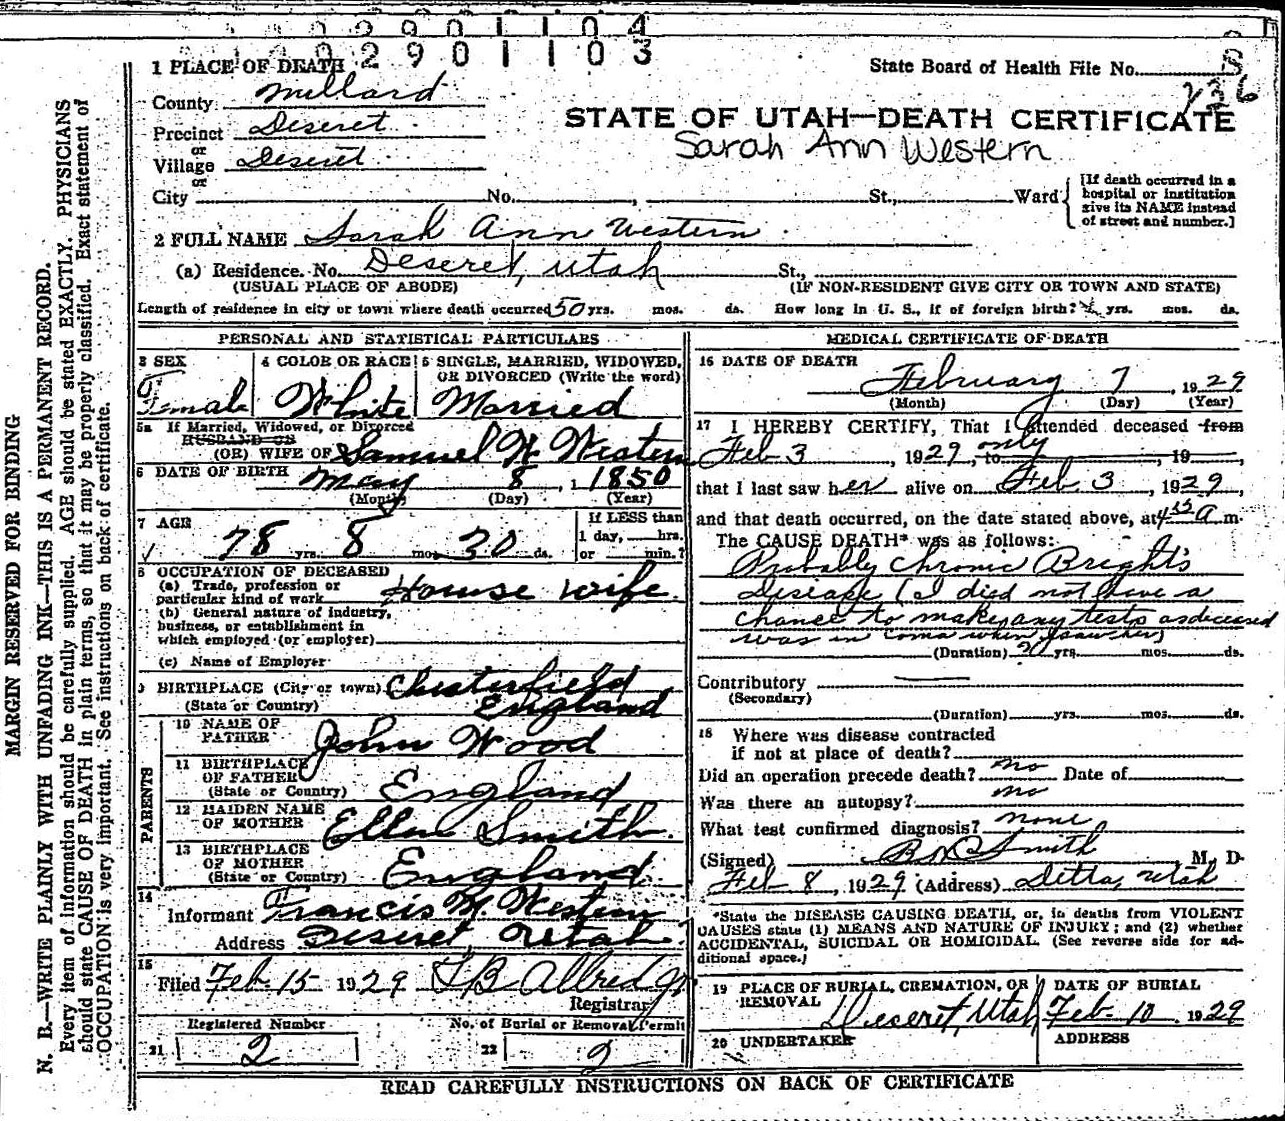 2901104
2901103
1 PLACE OF DEATH
State Board of Health File No.
8
236
County Millard
STATE OF UTAH—DEATH CERTIFICATE
Precinct Deseret
Sarah Ann Western
or
Village Deseret
or
City No. , St., Ward
[If death occurred in a
hospital or institution
give its NAME instead
of street and number.]
2 FULL NAME Sarah Ann Western
(a) Residence. No. Deseret, Utah St.,
(USUAL PLACE OF ABODE) (IF NON-RESIDENT GIVE CITY OR TOWN AND STATE)
Length of residence in city or town where death occurred 50 yrs. mos. ds. How long in U. S., if of foreign birth? yrs. mos. ds.
PERSONAL AND STATISTICAL PARTICULARS
3 SEX 4 COLOR OR RACE 5 SINGLE, MARRIED, WIDOWED,
OR DIVORCED (Write the word)
Female White Married
5a If Married, Widowed, or Divorced
HUSBAND OR
(OR) WIFE OF Samuel W Western
6 DATE OF BIRTH May 8, 1850
(Month) (Day) (Year)
7 AGE
78 yrs. 8 mos. 30 ds.
If LESS than
1 day, hrs.
or min.?
8 OCCUPATION OF DECEASED
(a) Trade, profession or
particular kind of work House wife
(b) General nature of industry,
business, or establishment in
which employed (or employer)
(c) Name of Employer
9 BIRTHPLACE (City or town) Chesterfield
(State or Country) England
PARENTS
10 NAME OF
FATHER John Wood
11 BIRTHPLACE
OF FATHER
(State or Country) England
12 MAIDEN NAME
OF MOTHER Ellen Smith
13 BIRTHPLACE
OF MOTHER
(State or Country) England
14
Informant Francis M. Western
Address Deseret, Utah
15
Filed Feb. 15 1929 T B Allred
Registrar
Registered Number No. of Burial or Removal Permit
21 2 22 2
MEDICAL CERTIFICATE OF DEATH
16 DATE OF DEATH
February 7 1929
(Month) (Day) (Year)
17 I HEREBY CERTIFY, That I attended deceased from
Feb 3, 1929, to only, 19
that I last saw her alive on Feb 3, 1929,
and that death occurred, on the date stated above, at 4 a m.
The CAUSE DEATH* was as follows:
Probably Chronic Bright's
Disease (I died not have a
chance to make any tests as deceased
was in coma when I saw her)
(Duration) yrs. mos. ds.
Contributory —
(Secondary)
(Duration) yrs. mos. ds.
18 Where was disease contracted
if not at place of death?
Did an operation precede death? no Date of
Was there an autopsy? no
What test confirmed diagnosis? none
(Signed) Smith, M. D.
Feb 8, 1929 (Address) Delta, Utah
*State the DISEASE CAUSING DEATH, or, in deaths from VIOLENT
CAUSES state (1) MEANS AND NATURE OF INJURY; and (2) whether
ACCIDENTAL, SUICIDAL OR HOMICIDAL. (See reverse side for ad-
ditional space.)
19 PLACE OF BURIAL, CREMATION, OR
REMOVAL
Deseret, Utah
DATE OF BURIAL
Feb. 10 1929
20 UNDERTAKER ADDRESS
READ CAREFULLY INSTRUCTIONS ON BACK OF CERTIFICATE
MARGIN RESERVED FOR BINDING
N. B.—WRITE PLAINLY WITH UNFADING INK—THIS IS A PERMANENT RECORD.
Every item of information should be carefully supplied. AGE should be stated EXACTLY. PHYSICIANS
should state CAUSE OF DEATH in plain terms, so that it may be properly classified. Exact statement of
OCCUPATION is very important. See instructions on back of certificate.